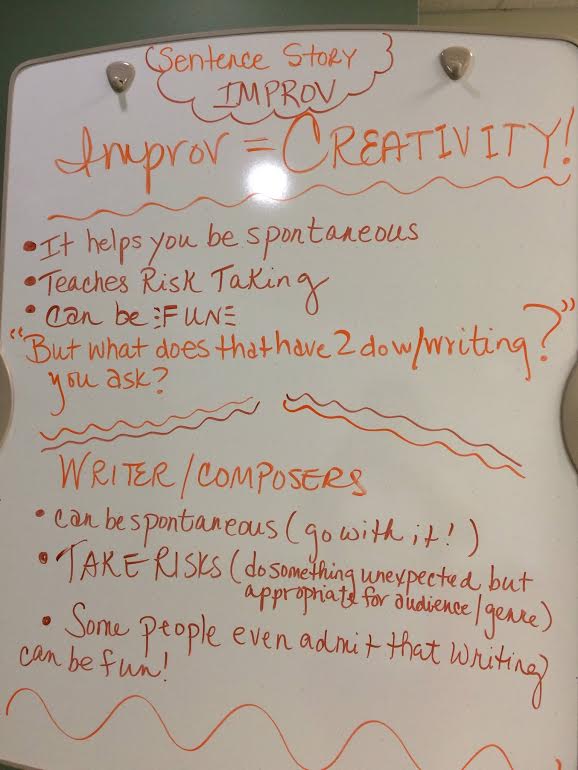 Sentence Story
IMPROV
Improv = CREATIVITY!
• It helps you be spontaneous
• Teaches Risk Taking
• Can be FUN
"But what does that have 2 do w/writing?"
you ask?
WRITER/COMPOSERS
• can be spontaneous (go with it!)
• TAKE RISKS (do something unexpected but
appropriate for audience/genre)
• Some people even admit that writing
can be fun!